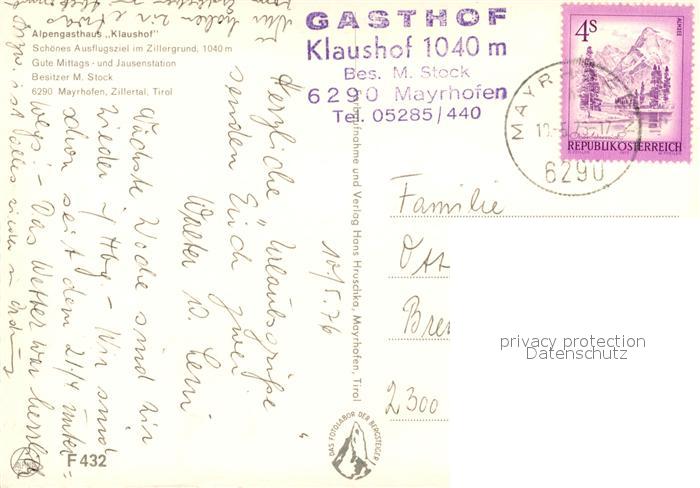 Alpengasthaus „Klaushof"
Schönes Ausflugsziel im Zillergrund, 1040 m
Gute Mittags- und Jausenstation
Besitzer M. Stock
6290 Mayrhofen, Zillertal, Tirol
GASTHOF
Klaushof 1040 m
Bes. M. Stock
6290 Mayrhofen
Tel. 05285/440
4S
ALMSEE
REPUBLIK ÖSTERREICH
MAYRH
6290
Farbaufnahme und Verlag Hans Hruschka, Mayrhofen, Tirol
DAS FOTOLABOR DER BERGSTEIGER
F 432
10/5.76
Herzliche Urlaubsgrüße
senden Euch zwei
Walter
Nächste Woche sind wir
wieder i/ Hbg. - Wir sind
schon seit dem 21/4 unter=
wegs! - Das Wetter war herrlich
Familie
Ott
Bre
2300
privacy protection
Datenschutz